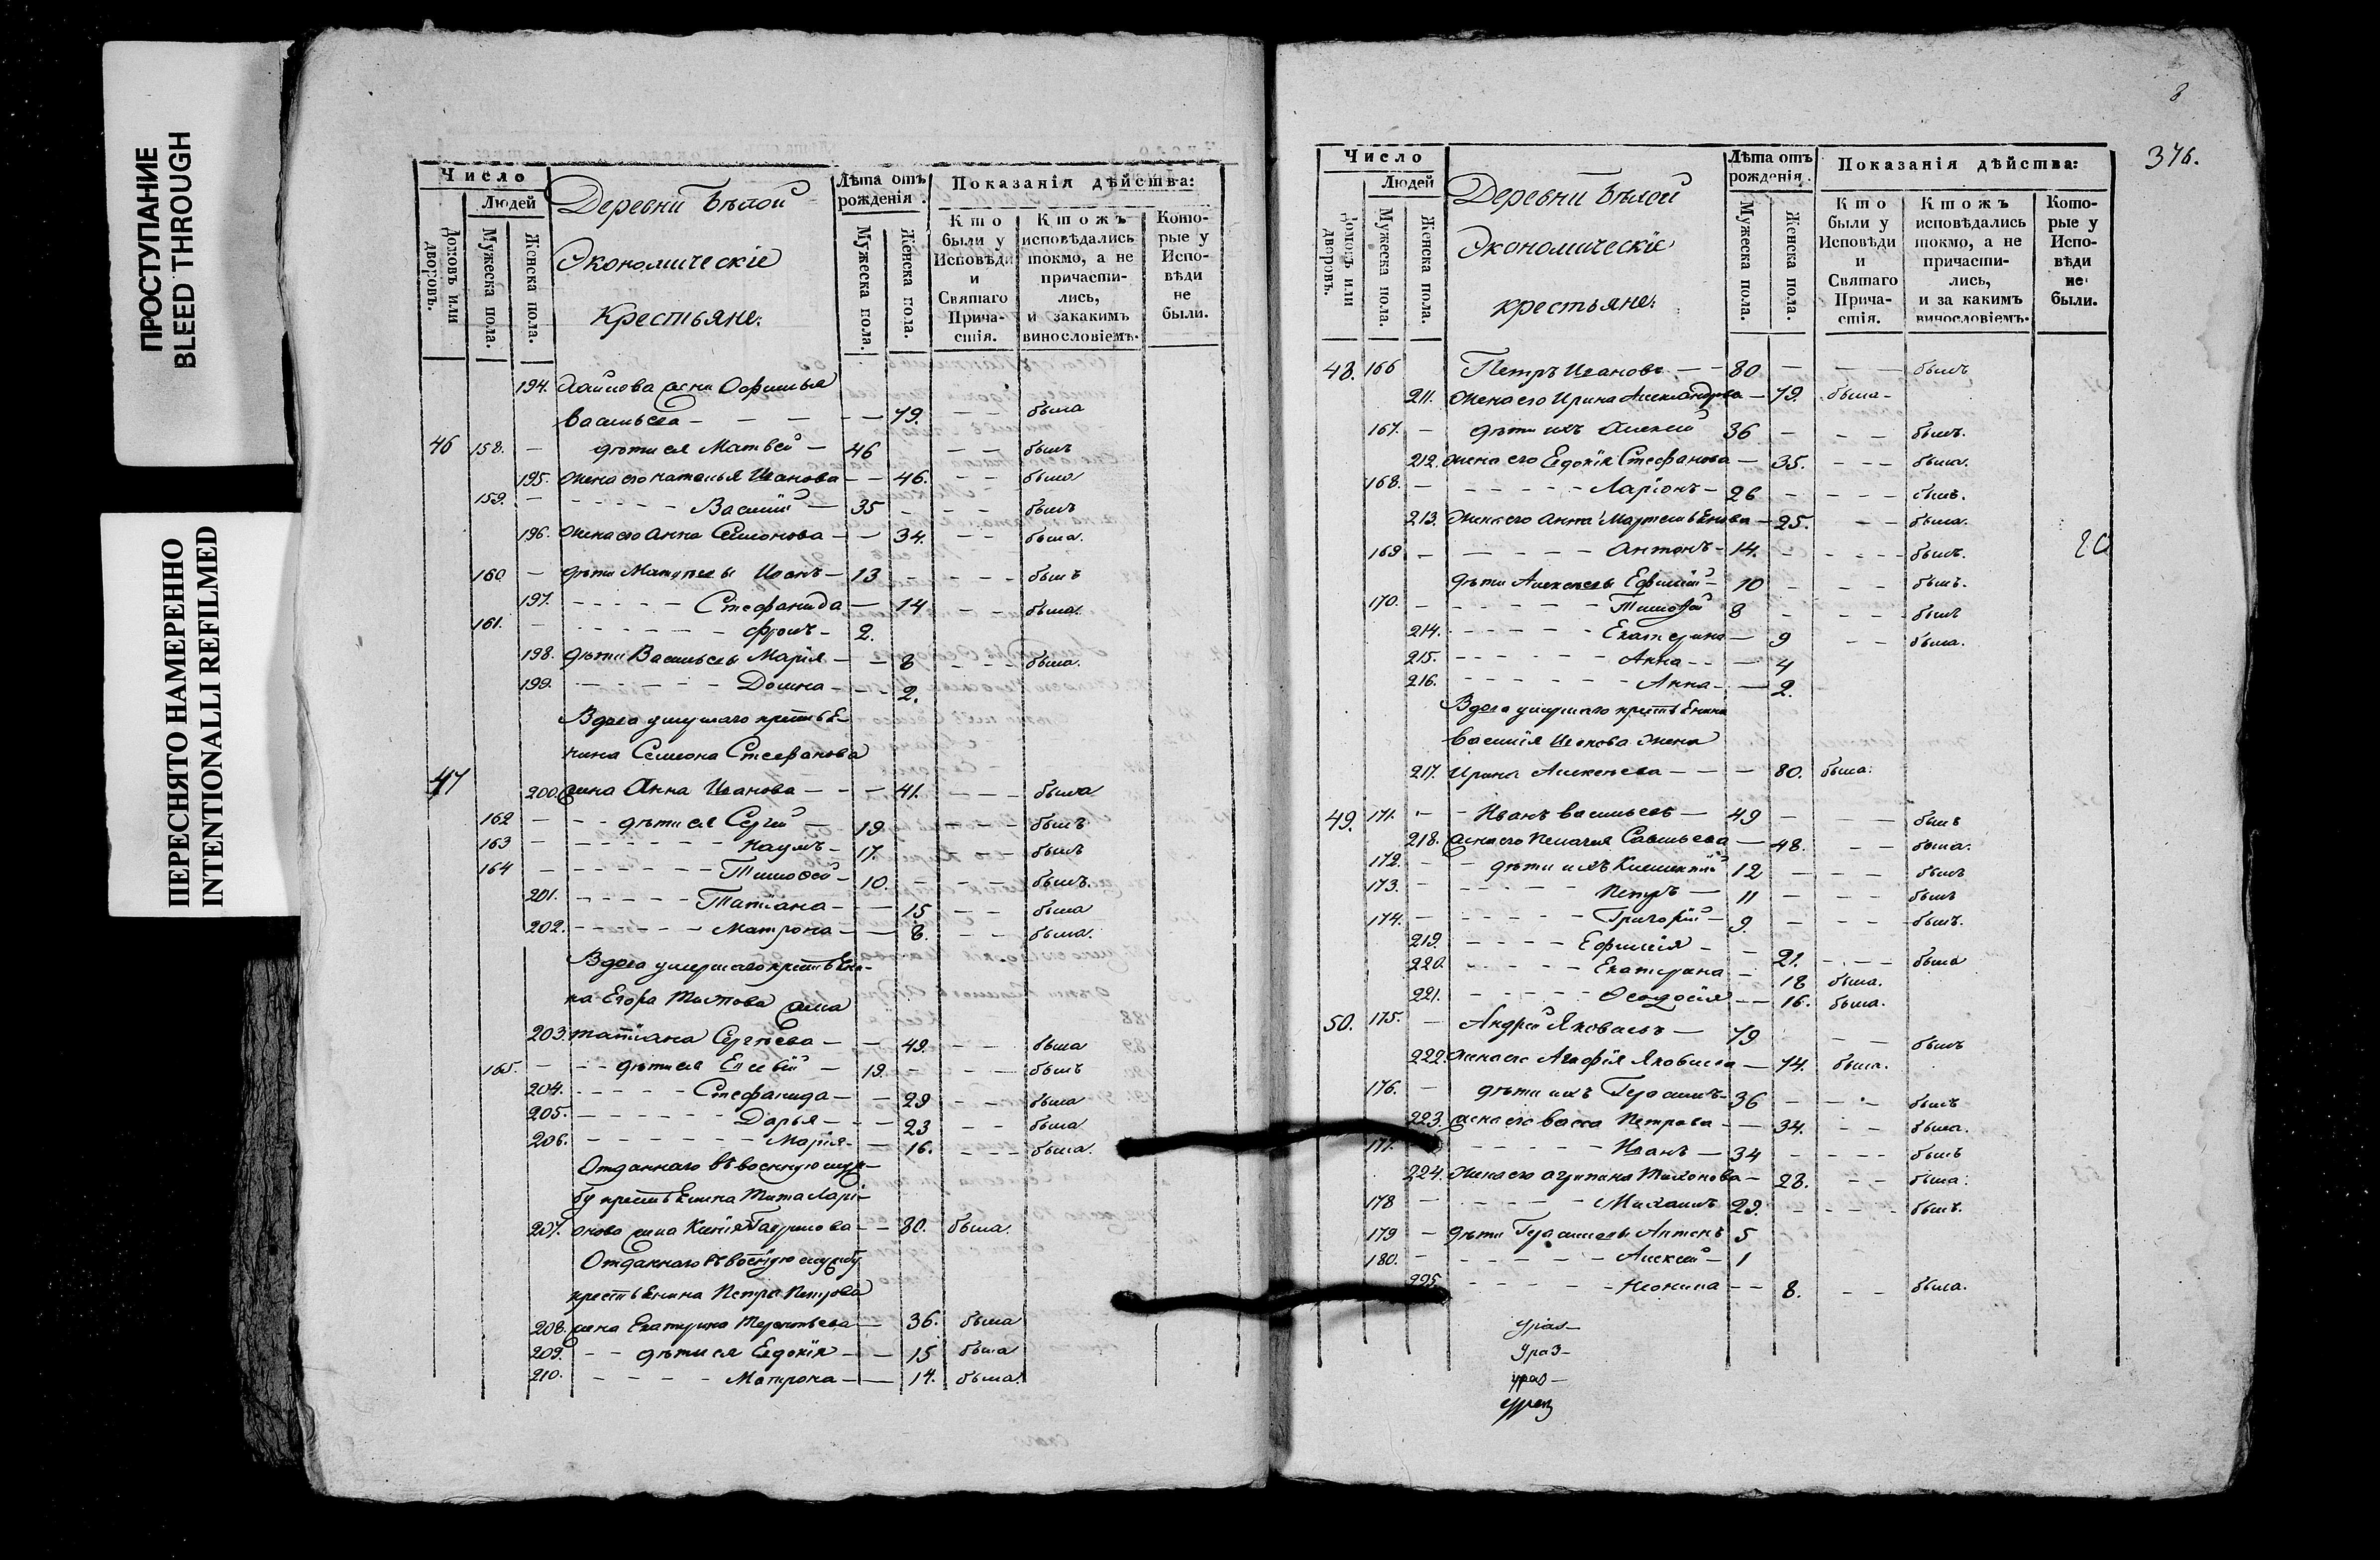 ПРОСТУПАНИЕ
BLEED THROUGH
ПЕРЕСНЯТО НАМЕРЕННО
INTENTIONALLI REFILMED
Число
Людей
Домовъ или дворовъ.
Мужеска пола.
Женска пола.
Деревни Бѣлой
Экономическіе
Крестьяне:
Лѣта отъ рожденія.
Мужеска пола.
Женска пола.
Показанія дѣйства:
Кто были у Исповѣди и Святаго Причастія.
Ктожъ исповѣдались токмо, а не причастились, и закакимъ винословіемъ.
Которые у Исповѣди не были.
194. жена
Васильева — — — 79. — — была
46 158. — дѣти ея Матвей — 46 — — былъ
195. жена его Наталья Иванова — — 46. — — была
159. — — — — — Василій — 35 — — — былъ
196. жена его Анна Семионова — — 34. — — была.
160 — дѣти Матвеевы Иванъ — 13 — — — былъ
197. — — — — Стефанида — 14 — — была.
161. — — — — — 2.
198. дѣти Васильевы Марія — — 8 — — — была.
199. — — — — — Домна — — — 2.
Вдова умершаго крестьѣ-
нина Семиона Стефанова
47
200. жена Анна Иванова — — — 41. — — — была.
162 — — — дѣти ея Сергій — 19. — — — былъ
163 — — — — — — Наумъ — 17. — — — былъ
164 — — — — — — Тимофей — 10. — — — былъ.
201. — — — — — Татіана — — — 15. — — была
202. — — — — — Матрона — — 8. — — была.
Вдова умершаго крестьѣни-
на Егора жена
203. Татіана Сергѣева — — 49. — — была
165. — — — дѣти ея Евсевій — 19. — — — былъ
204. — — — — Стефанида — — 29 — — была
205. — — — — — Дарья — — — 23 — — была
206. — — — — — — Марія — — 16. — — — была.
Отданнаго въ военную служ-
бу крестьѣнина Тита Ларі-
207. онова жена Гаврилова — — 80. была.
Отданнаго въ военную службу
крестьѣнина Петра Петрова
208. жена Екатерина Терентьева — 36. была
209. — — дѣти ея Евдокія — — 15 была
210. — — — — Матрона — — 14. была.
8
376.
Число
Людей
Домовъ или дворовъ.
Мужеска пола.
Женска пола.
Деревни Бѣлой
Экономическіе
крестьяне:
Лѣта отъ рожденія.
Мужеска пола.
Женска пола.
Показанія дѣйства:
Кто были у Исповѣди и Святаго Причастія.
Ктожъ исповѣдались токмо, а не причастились, и за какимъ винословіемъ.
Которые у Исповѣди не были.
48. 166 Петръ Ивановъ — — 80 — — — былъ
211. жена его Ирина Александрова — 79. была —
167. — дѣти ихъ Алексій 36 — — — былъ.
212. жена его Евдокія Стефанова — 35. — — — была.
168. — — — — — Ларіонъ — 26 — — — — былъ.
213. жена его Анна — 25. — — была.
169 — — — — — Антонъ — 14. — — — — былъ.
дѣти Алексеевы Ефимій — 10 — — — былъ.
170. — — — — — Тимофей 8 — — — былъ
214. — — — — — Екатерина — 9 — — была.
215. — — — — — — Анна — — — 4
216. — — — — — — Анна — — 2.
Вдова умершаго крестьѣнина
Василія Иванова жена
217. Ирина Алексеева — — — 80. была:
49. 171. — — Иванъ Васильевъ — 49 — — — былъ
218. жена его Пелагея Савельева — 48. — — была.
172. — — дѣти ихъ 12 — — — былъ
173. — — — — — Петръ — 11 — — — былъ
174. — — — — — Григорій — 9. — — — былъ.
219. — — — — Ефимія — — 21. — — — была
220. — — — — Екатерина — 18 была.
221. — — — — Феодосія — — 16. была.
50. 175. — Андрей Яковлевъ — 79 — — былъ
222. жена его Агафія Яковлева — 74. была.
176. — дѣти ихъ Герасимъ — 36 — — — былъ
223. жена его Васса Петрова — — 34. — — была.
177. — — — — — Иванъ — 34 — — — — былъ
224. жена его Агрипина Тихонова — 28. — — была:
178 — — — — — Михаилъ 29. — — — — былъ.
179 — дѣти Герасимовы Антонъ 5
180. — — — — — — Алексій — 1
225. — — — — — Неонила — — 8. — — была.